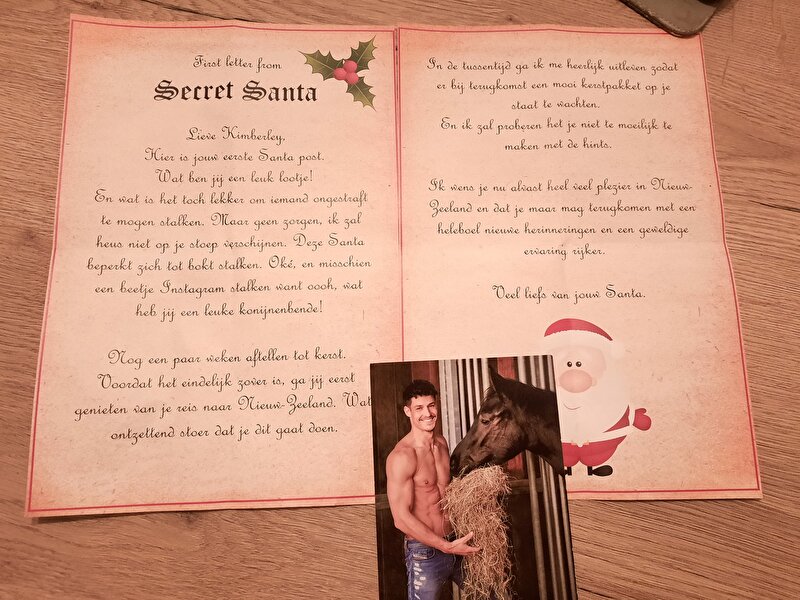 First letter from
Secret Santa
Lieve Kimberley,
Hier is jouw eerste Santa post.
Wat ben jij een leuk lootje!
En wat is het toch lekker om iemand ongestraft
te mogen stalken. Maar geen zorgen, ik zal
heus niet op je stoep verschijnen. Deze Santa
beperkt zich tot bokt stalken. Oké, en misschien
een beetje Instagram stalken want oooh, wat
heb jij een leuke konijnenbende!
Nog een paar weken aftellen tot kerst.
Voordat het eindelijk zover is, ga jij eerst
genieten van je reis naar Nieuw-Zeeland. Wat
ontzettend stoer dat je dit gaat doen.
In de tussentijd ga ik me heerlijk uitleven zodat
er bij terugkomst een mooi kerstpakket op je
staat te wachten.
En ik zal proberen het je niet te moeilijk te
maken met de hints.
Ik wens je nu alvast heel veel plezier in Nieuw-
Zeeland en dat je maar mag terugkomen met een
heleboel nieuwe herinneringen en een geweldige
ervaring rijker.
Veel liefs van jouw Santa.